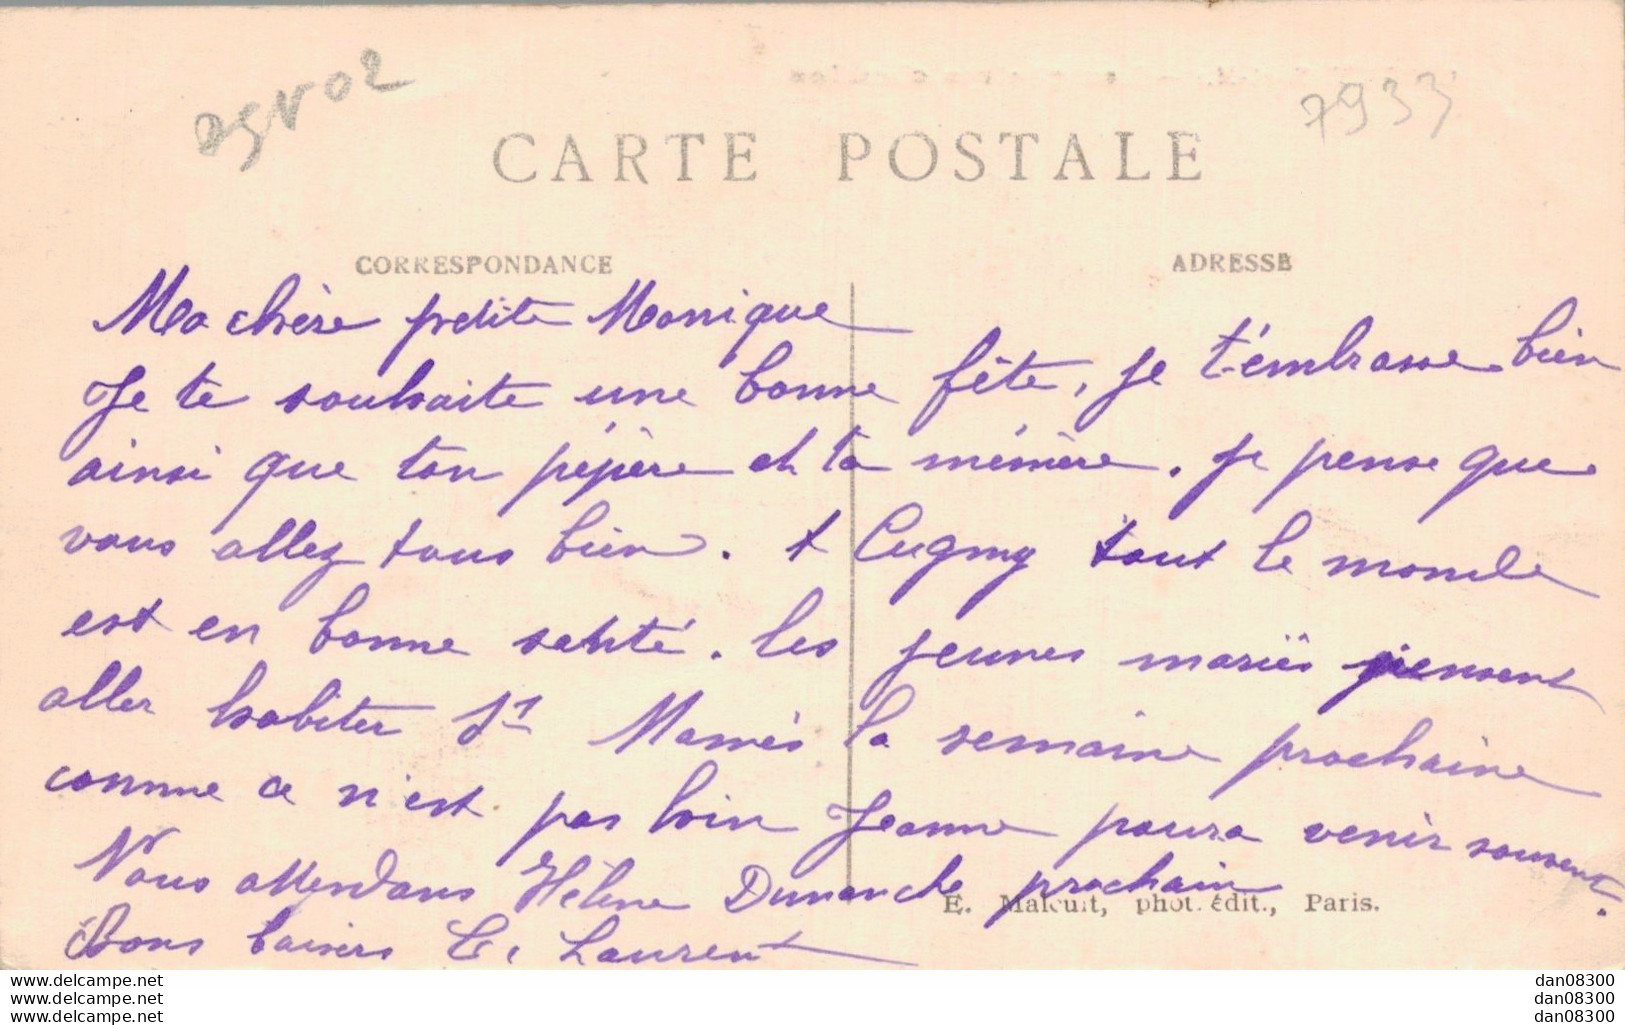 7933
CARTE POSTALE
CORRESPONDANCE
ADRESSE
Ma chère petite Monique
Je te souhaite une bonne fête, je t'embrasse bien
ainsi que ton pépère et ta mémère. Je pense que
vous allez tous bien. A Cugny tout le monde
est en bonne santé. Les jeunes mariés pensent
aller habiter St Mamès la semaine prochaine
comme ce n'est pas loin Jeanne pourra venir souvent.
Nous attendons Hélène Dimanche prochain
Bons baisers C. Laurent
E. Malcuit, phot. édit., Paris.
www.delcampe.net
www.delcampe.net
www.delcampe.net
dan08300
dan08300
dan08300